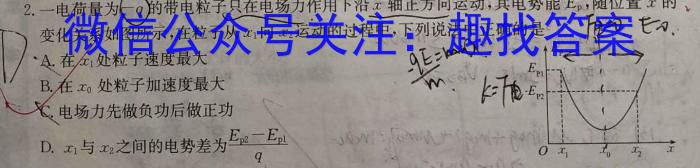 2.一电荷量为-q的带电粒子只在电场力作用下沿x轴正方向运动,其电势能Eₚ随位置x的
变化关系如图所示,在粒子从x₁向x₂运动的过程中,下列说法正确的是
微信公众号关注:趣找答案
A.在x₁处粒子速度最大
B.在x₀处粒子加速度最大
C.电场力先做负功后做正功
D.x₁与x₂之间的电势差为(Eₚ₂-Eₚ₁)/q
qE=
m
k=
Eₚ
Eₚ₁
Eₚ₂
O x₁ x₀ x₂ x